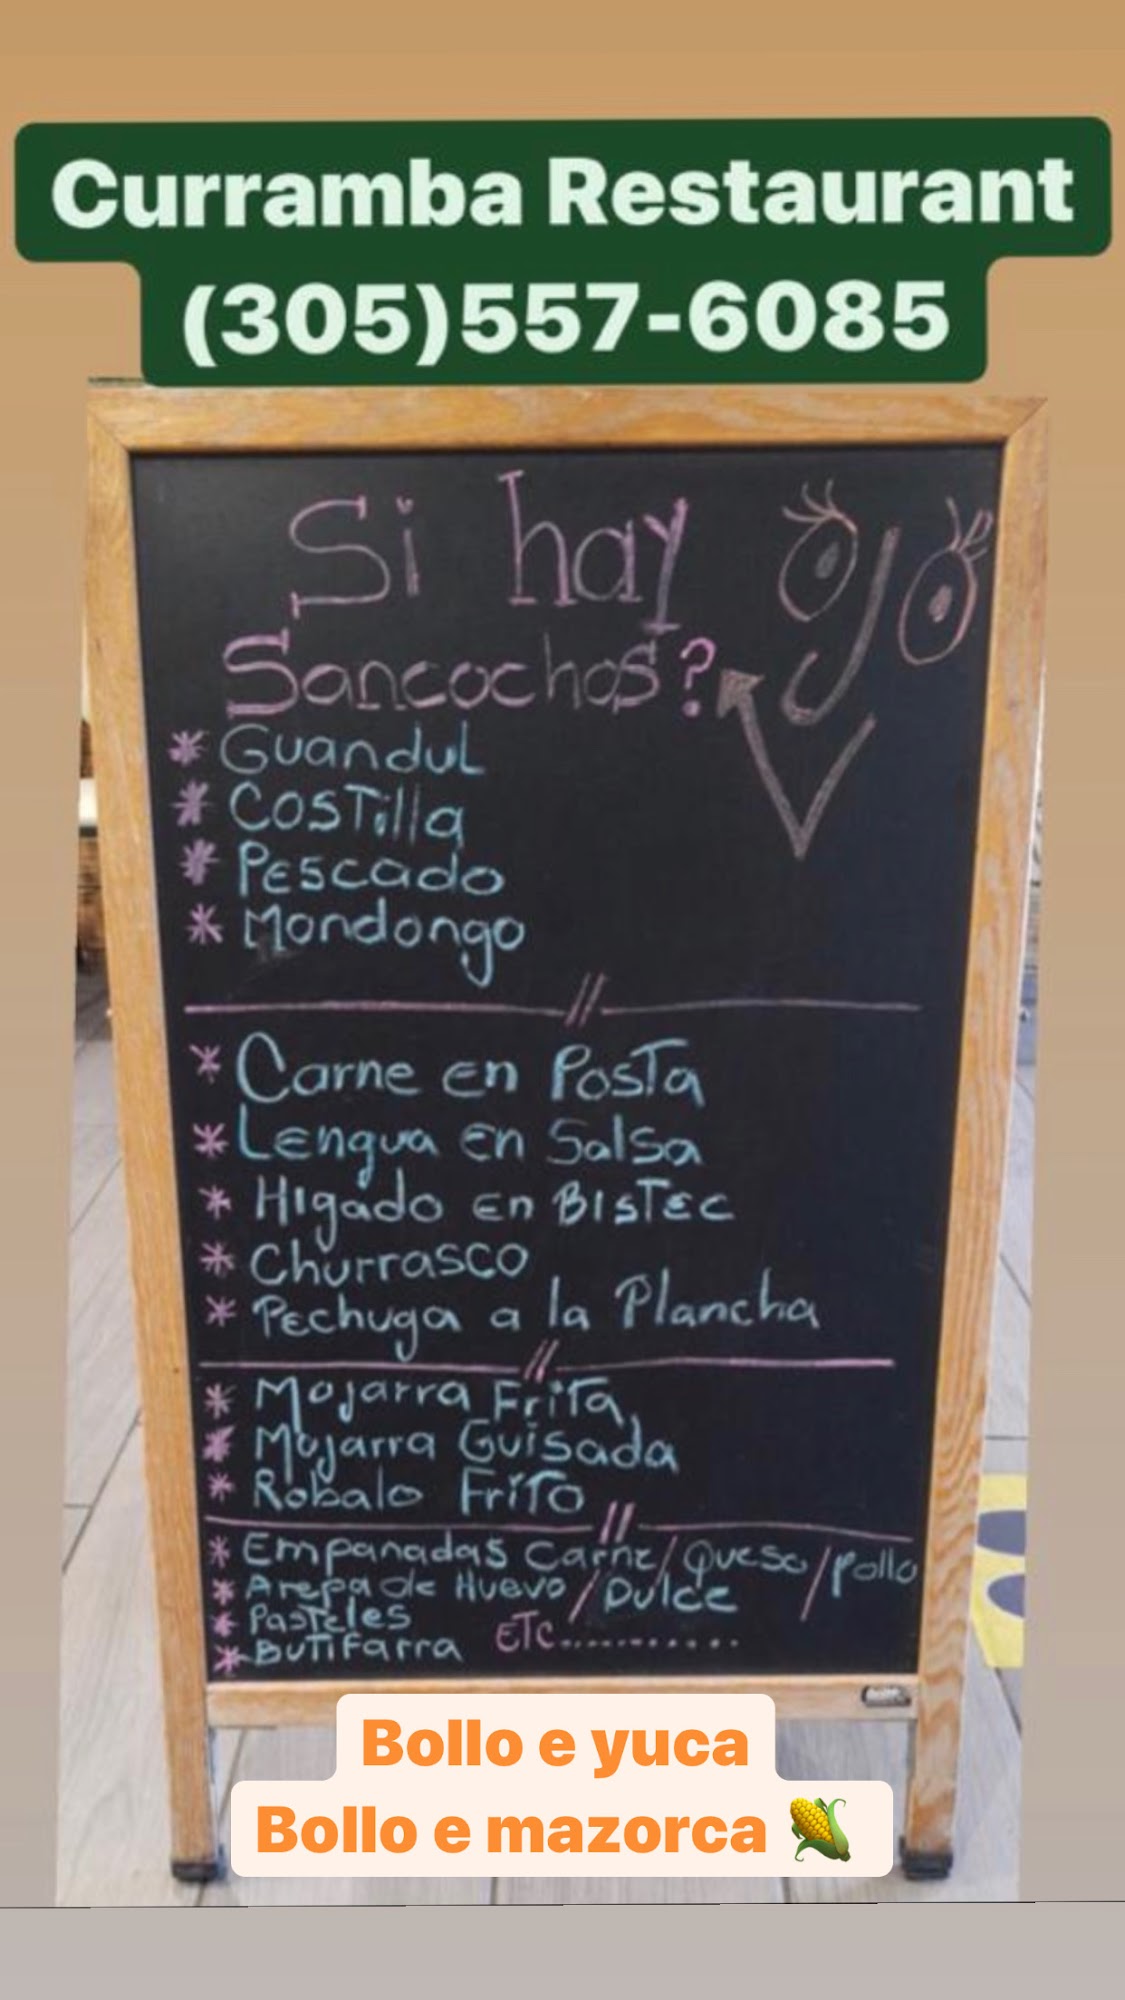 Curramba Restaurant
(305)557-6085
Si hay
Sancochos?
* Guandul
* Costilla
* Pescado
* Mondongo
//
* Carne en Posta
* Lengua en Salsa
* Higado en Bistec
* Churrasco
* Pechuga a la Plancha
//
* Mojarra Frita,
* Mojarra Guisada
* Robalo Frito
//
* Empanadas Carne/Queso/pollo
* Arepa de Huevo/Dulce
* Pasteles
* Butifarra ETC...........
Bollo e yuca
Bollo e mazorca 🌽